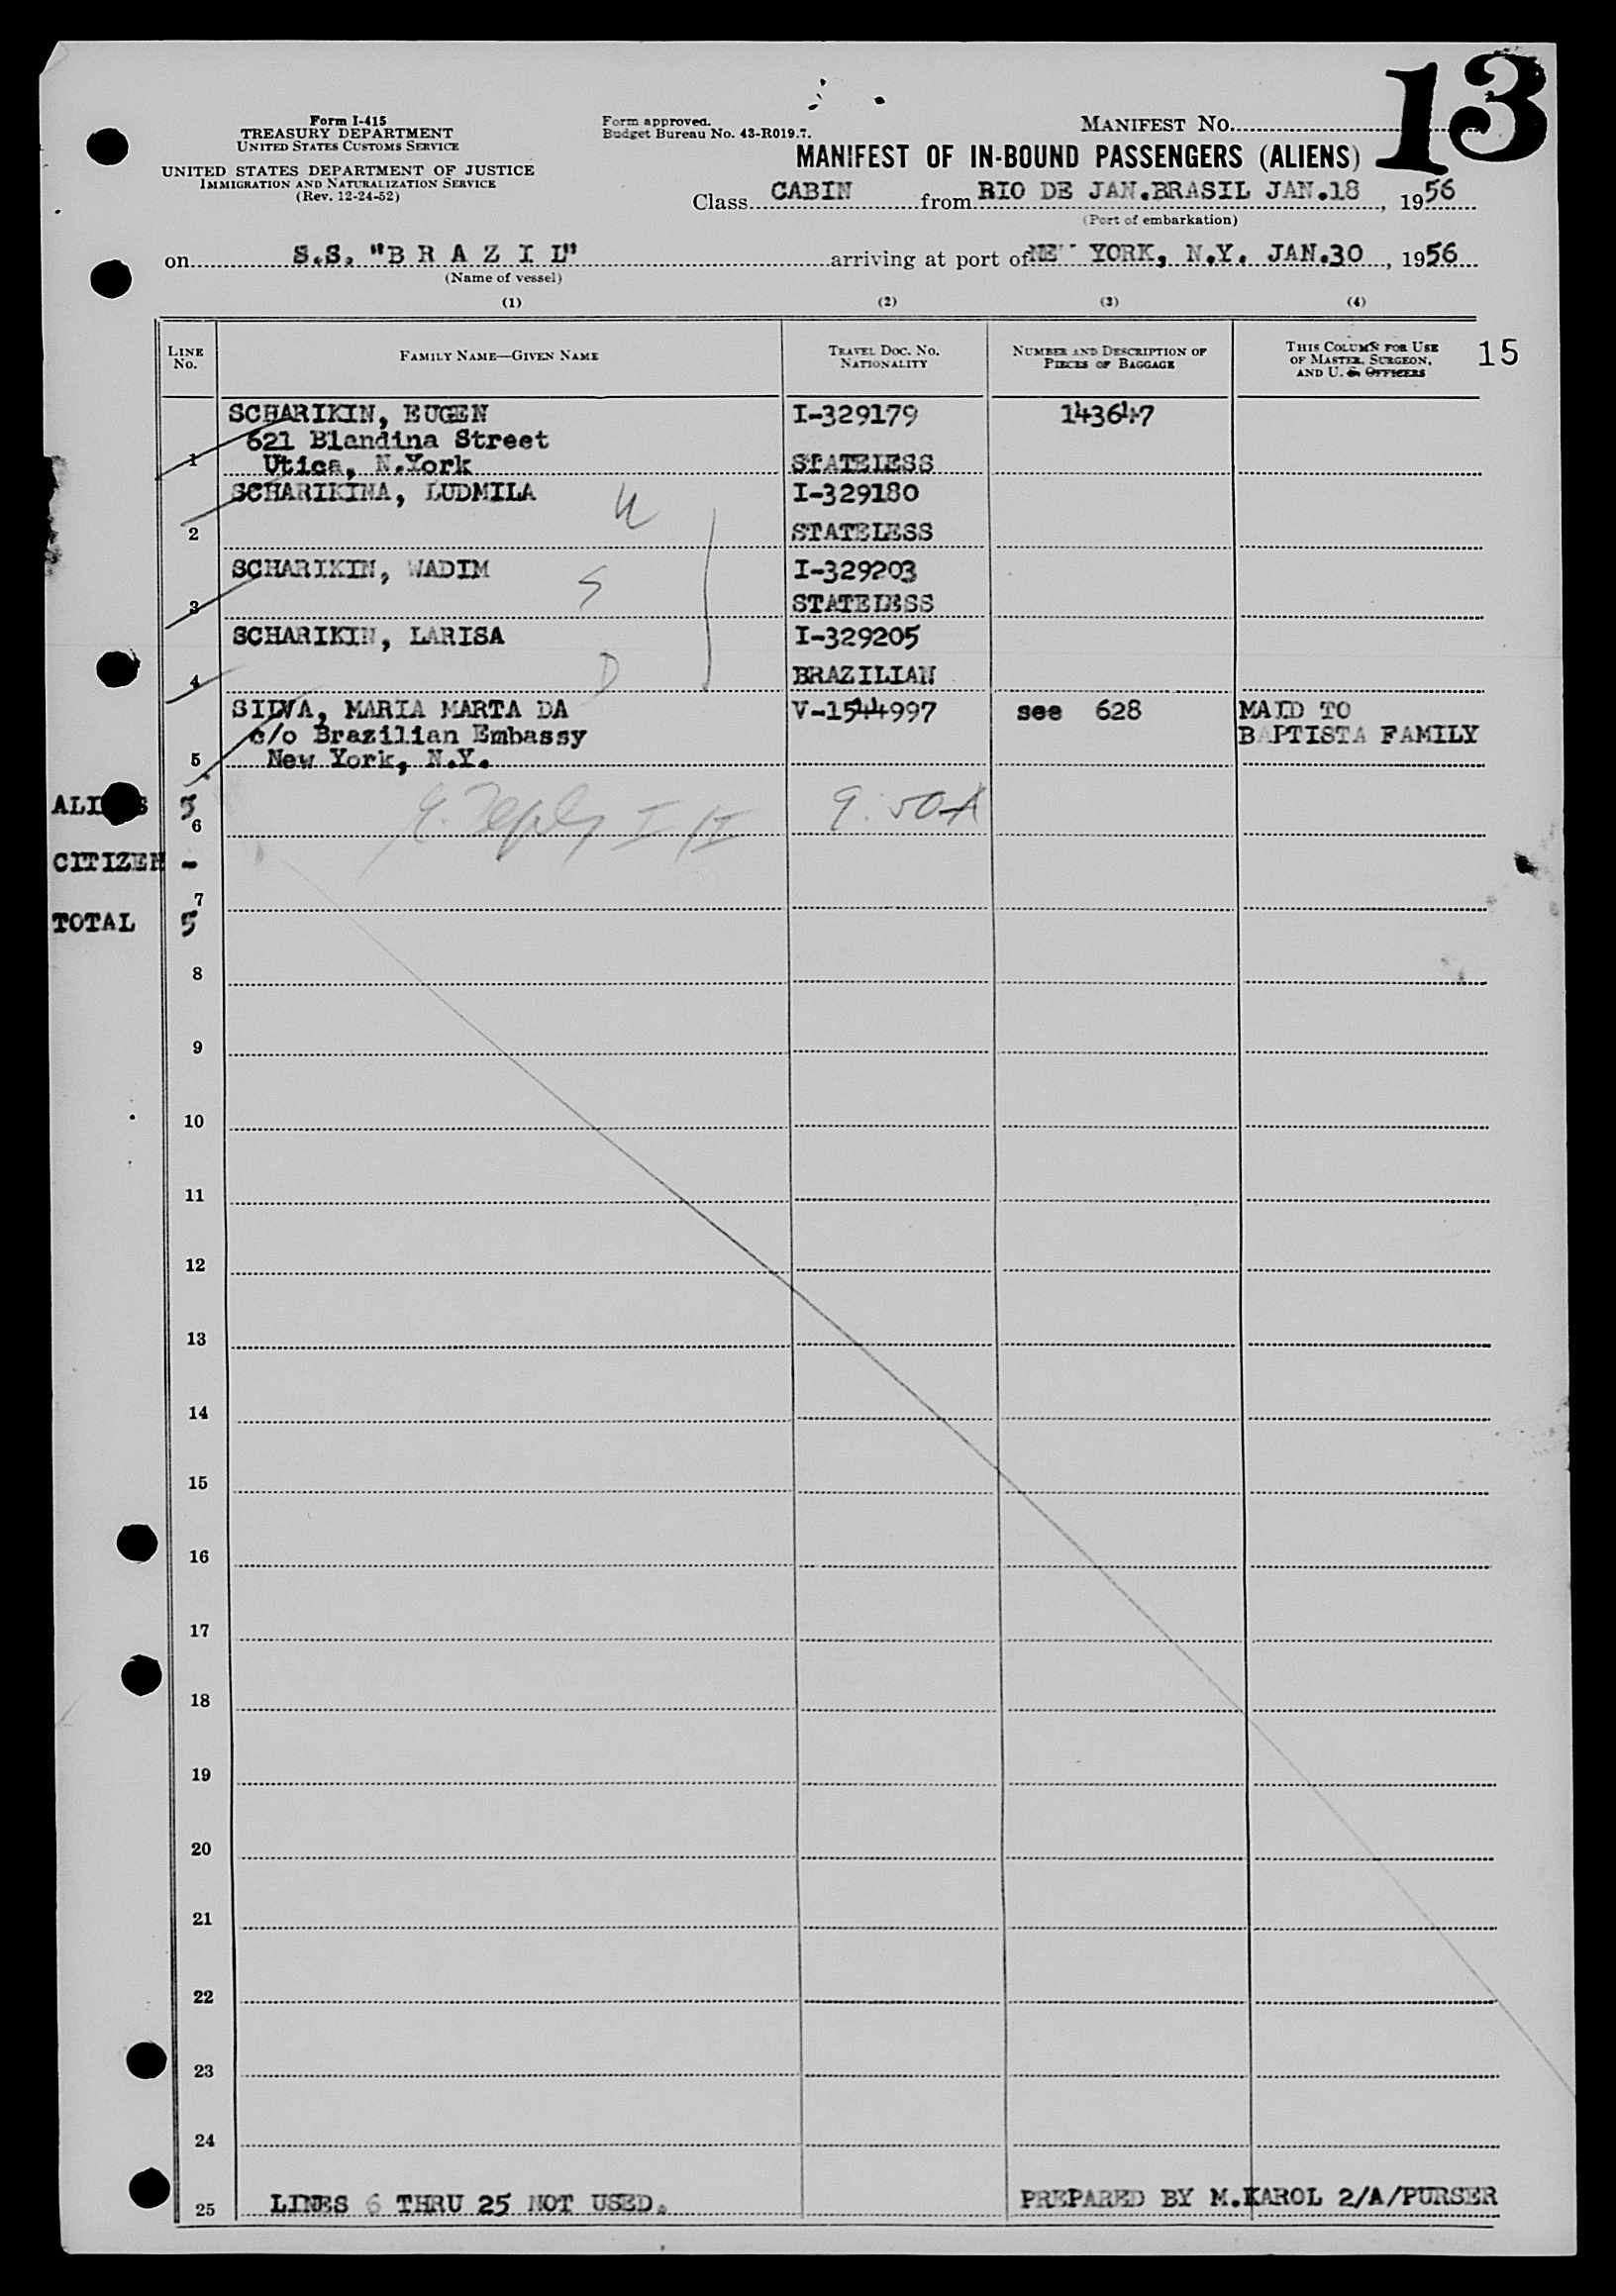 13
Form I-415
TREASURY DEPARTMENT
UNITED STATES CUSTOMS SERVICE
UNITED STATES DEPARTMENT OF JUSTICE
IMMIGRATION AND NATURALIZATION SERVICE
(Rev. 12-24-52)
Form approved.
Budget Bureau No. 43-R019.7.
MANIFEST NO.
MANIFEST OF IN-BOUND PASSENGERS (ALIENS)
Class CABIN from RIO DE JAN.BRASIL JAN.18, 1956
(Port of embarkation)
on S.S. "B R A Z I L" arriving at port of NEW YORK, N.Y. JAN.30, 1956
(Name of vessel)
(1) (2) (3) (4)
LINE NO. FAMILY NAME—GIVEN NAME TRAVEL DOC. NO. NATIONALITY NUMBER AND DESCRIPTION OF PIECES OF BAGGAGE THIS COLUMN FOR USE OF MASTER, SURGEON, AND U. S. OFFICERS 15
SCHARIKIN, EUGEN I-329179 143647
621 Blandina Street
1 Utica, N.York STATELESS
SCHARIKINA, LUDMILA I-329180
2 STATELESS
SCHARIKIN, WADIM S I-329203
3 STATELESS
SCHARIKIN, LARISA I-329205
4 D BRAZILIAN
SILVA, MARIA MARTA DA V-1544997 see 628 MAID TO
c/o Brazilian Embassy BAPTISTA FAMILY
5 New York, N.Y.
ALIENS 5
6 9:50A
CITIZEN -
7
TOTAL 5
8
9
10
11
12
13
14
15
16
17
18
19
20
21
22
23
24
25 LINES 6 THRU 25 NOT USED. PREPARED BY M.KAROL 2/A/PURSER